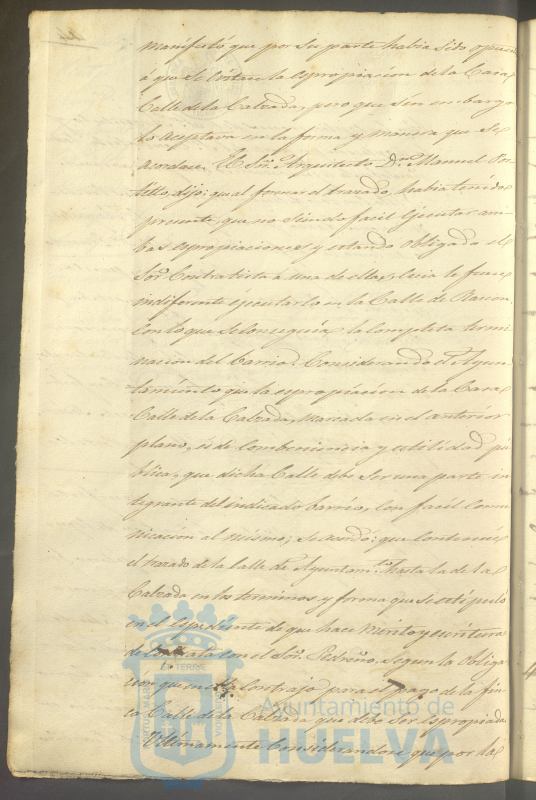 manifestó que por su parte habia sido opues
á que se costease la espropiacion de la Casa
Calle de la Calzada, pero que sin embargo
lo aceptava en la forma y manera que se
acordase. El Sor. Arquitecto Dn. Manuel
dijo: que al formar el trazado, habia tenido
presente, que no siendo facil ejecutar am-
bas espropiaciones y estando obligado el
Sor. Contratista á una de ellas, seria le fuese
indiferente ejecutarlo en la Calle de Rascon
con lo que se conseguia la completa termi
nacion del barrio. Considerando el Ayun
tamiento que la espropiacion de la Casa
Calle de la Calzada, marcada en el anterior
plano, es de combeniencia y utilidad pú
blica, que dicha Calle debe ser una parte in
tegrante del indicado barrio, con facil comu
nicación al mismo; se acordó: que continue
el trazado de la calle de Ayuntamto. hasta la de la
Calzada en los terminos y forma que se estipuló
en el espediente de que hace merito y escritura
de contrata con el Sor. Pedreño, segun la obliga
cion que en ella contrajo para el pago de la fin
ca Calle de la Calzada que debe ser espropiada
Ultimamente considerandose que por la
Ayuntamiento de
HUELVA